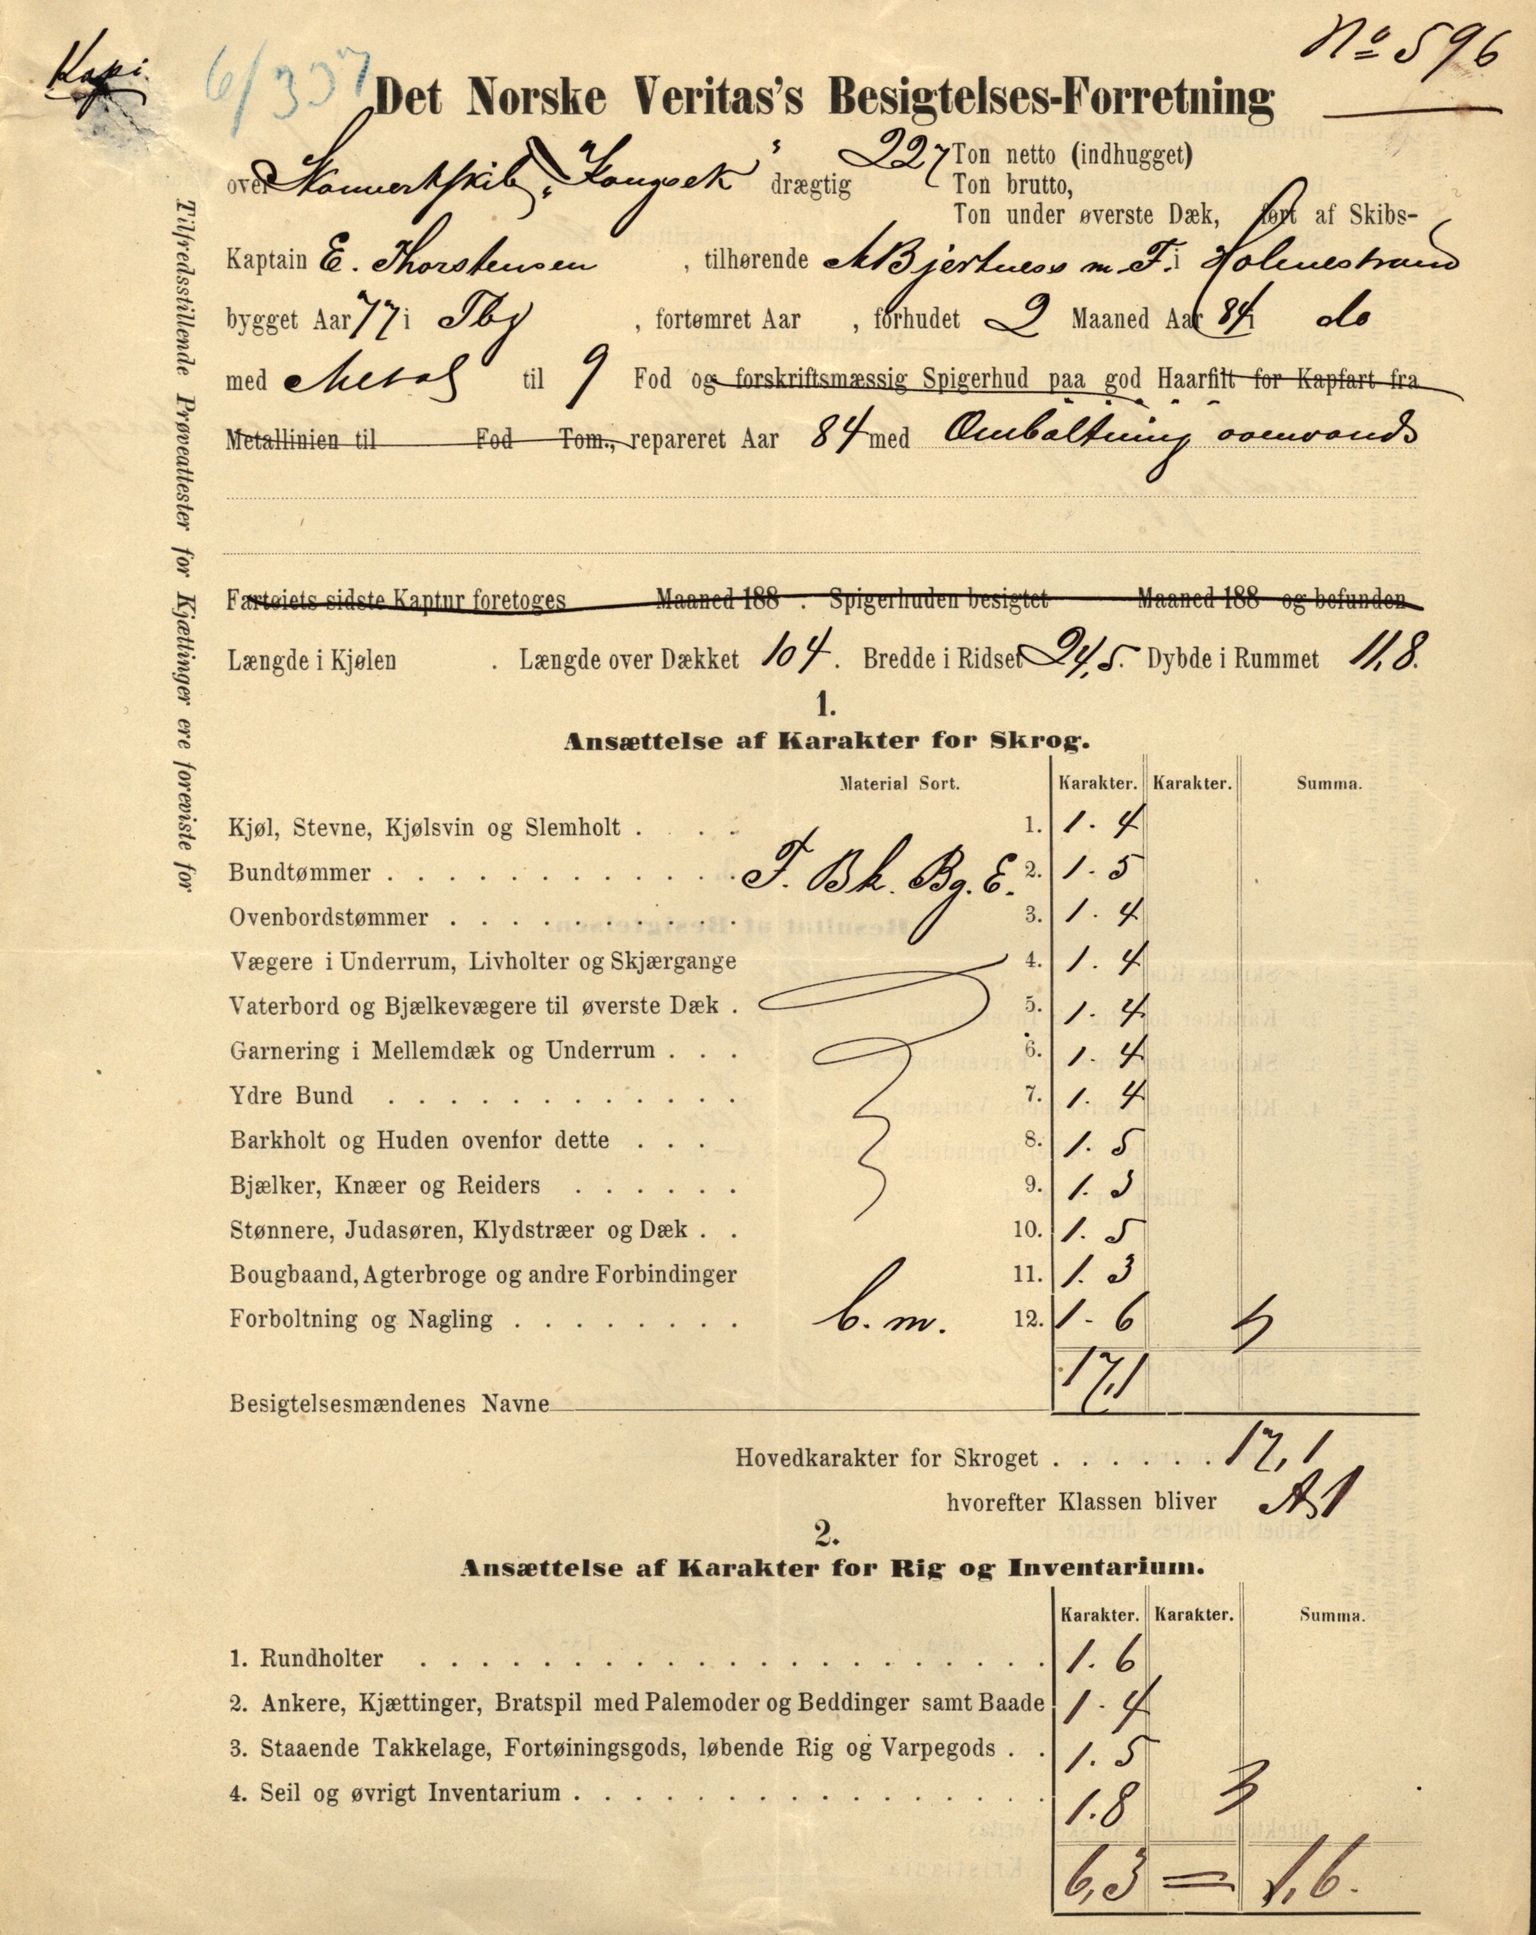 Kopi.
6/337
No 596
Det Norske Veritas's Besigtelses-Forretning
over Skonnertskib "Kongsek" drægtig 227 Ton netto (indhugget)
Ton brutto,
Ton under øverste Dæk, ført af Skibs-
Kaptain E. Thorstensen, tilhørende A Bjertness m. F. i Holmestrand
bygget Aar 77 i Tbg, fortømret Aar , forhudet 2 Maaned Aar 84 i do
med Metal til 9 Fod og forskriftsmæssig Spigerhud paa god Haarfilt for Kapfart fra
Metallinien til Fod Tom., repareret Aar 84 med Omboltning ovenvands
Fartøiets sidste Kaptur foretoges Maaned 188 . Spigerhuden besigtet Maaned 188 og befunden
Længde i Kjølen . Længde over Dækket 104. Bredde i Ridset 24,5. Dybde i Rummet 11,8.
Tilfredsstillende Prøveattester for Kjættinger ere foreviste for
1.
Ansættelse af Karakter for Skrog.
Material Sort. Karakter. Karakter. Summa.
Kjøl, Stevne, Kjølsvin og Slemholt . . . 1. 1. 4
Bundtømmer . . . . . . . . . . . . F. Bk. Bg. E. 2. 1. 5
Ovenbordstømmer . . . . . . . . . . 3. 1. 4
Vægere i Underrum, Livholter og Skjærgange 4. 1. 4
Vaterbord og Bjælkevægere til øverste Dæk . 5. 1. 4
Garnering i Mellemdæk og Underrum . . . 6. 1. 4
Ydre Bund . . . . . . . . . . . . 7. 1. 4
Barkholt og Huden ovenfor dette . . . 8. 1. 5
Bjælker, Knæer og Reiders . . . . . . 9. 1. 3
Stønnere, Judasøren, Klydstræer og Dæk . . 10. 1. 5
Bougbaand, Agterbroge og andre Forbindinger 11. 1. 3
Forboltning og Nagling . . . . . . . . b. m. 12. 1. 6
17,1
Besigtelsesmændenes Navne
Hovedkarakter for Skroget . . . . . . 17,1
hvorefter Klassen bliver A1
2.
Ansættelse af Karakter for Rig og Inventarium.
Karakter. Karakter. Summa.
1. Rundholter . . . . . . . . . . . . . . . . . . . . . 1. 6
2. Ankere, Kjættinger, Bratspil med Palemoder og Beddinger samt Baade 1. 4
3. Staaende Takkelage, Fortøiningsgods, løbende Rig og Varpegods . . 1. 5
4. Seil og øvrigt Inventarium . . . . . . . . . . . . . . . . 1. 8
6,3 = 1,6.